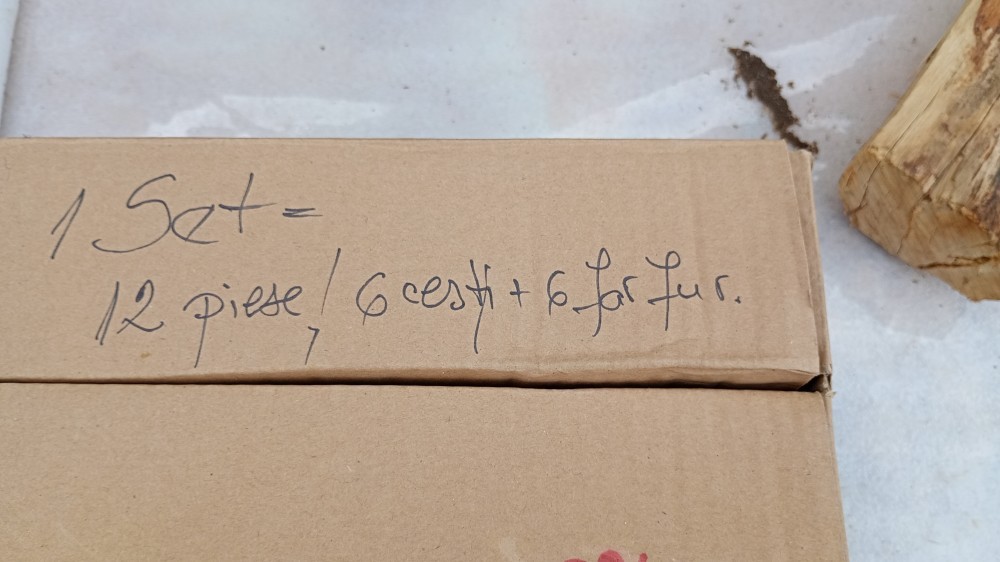 1 Set =
12 piese / 6 cești + 6 farfur.